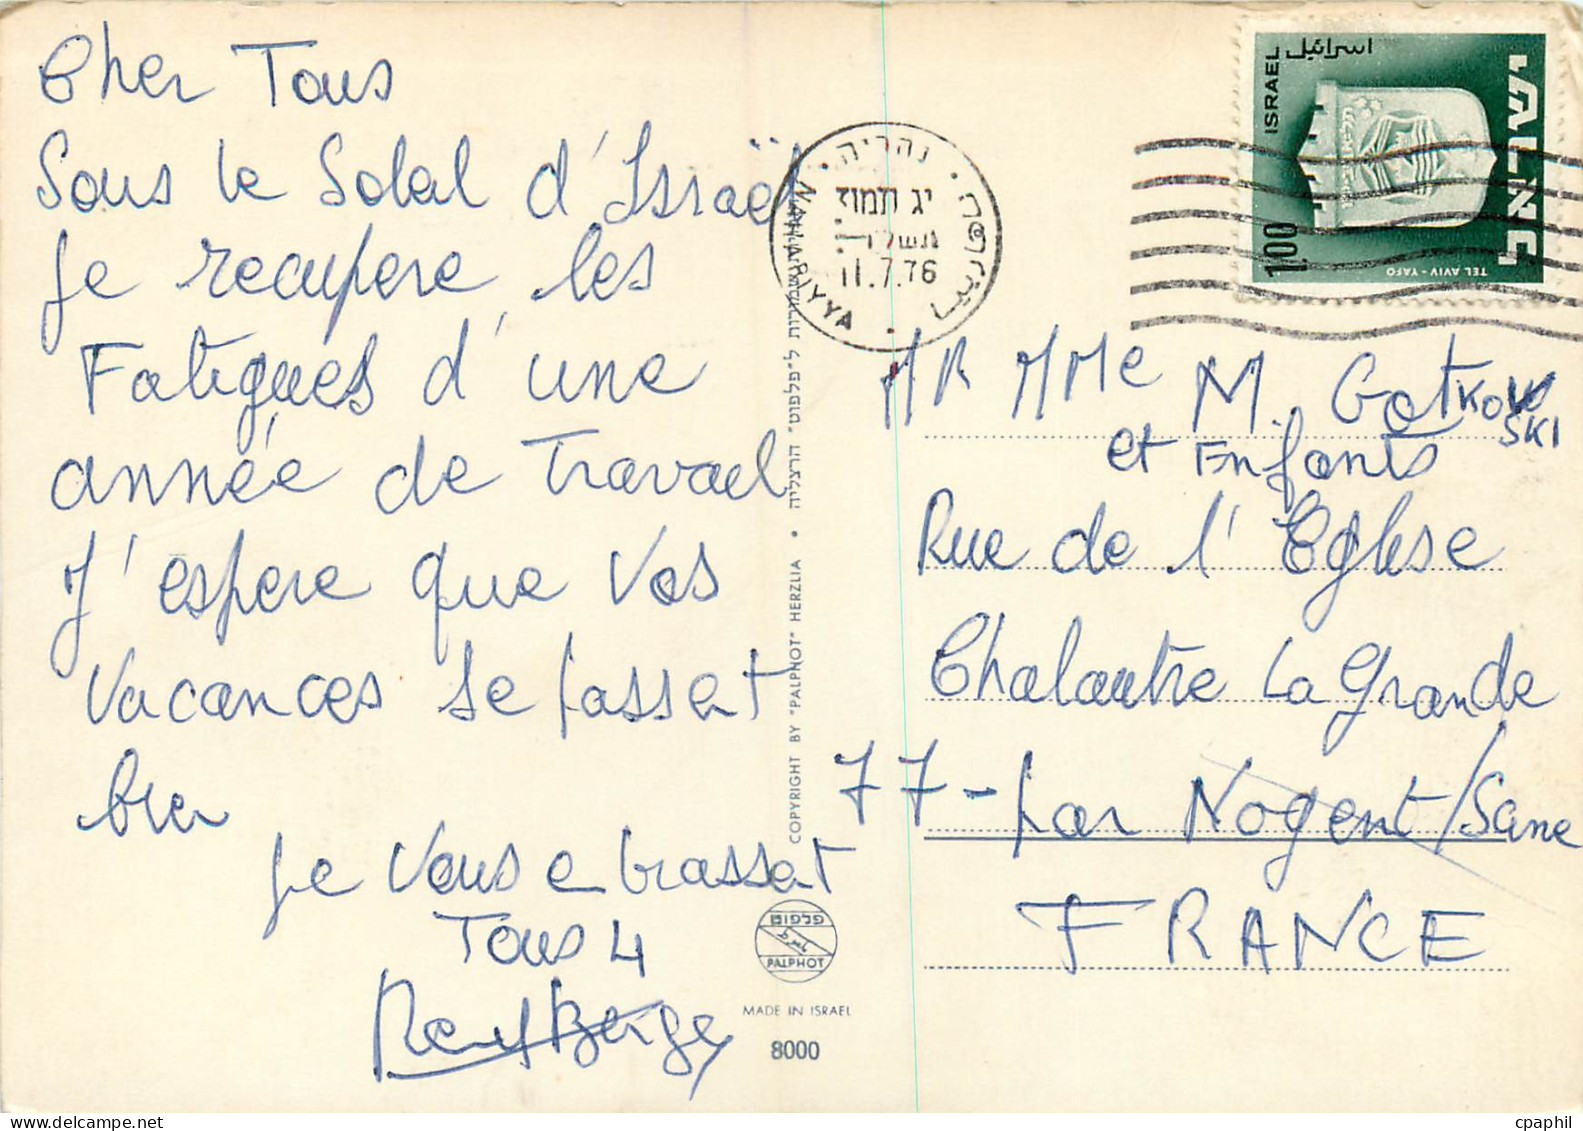 Cher Tous
Sous le Solal d'Israël
je recupere les
Fatigues d'une
année de Travael
J'espere que Vos
Vacances se passet
bien
je Vous e brasset
Tous 4
MR MMe M. Gotkowski
et Enfants
Rue de l'Eglise
Chalautre La Grande
77 - par Nogent/Seine
FRANCE
ISRAEL
اسرائيل
ישראל
1.00
TEL AVIV - YAFO
נהריה
NAHARIYYA
יג תמוז
11.7.76
COPYRIGHT BY "PALPHOT" HERZLIA • כל הזכויות שמורות ל"פלפוט" הרצליה
פלפוט
PALPHOT
MADE IN ISRAEL
8000
cpaphil